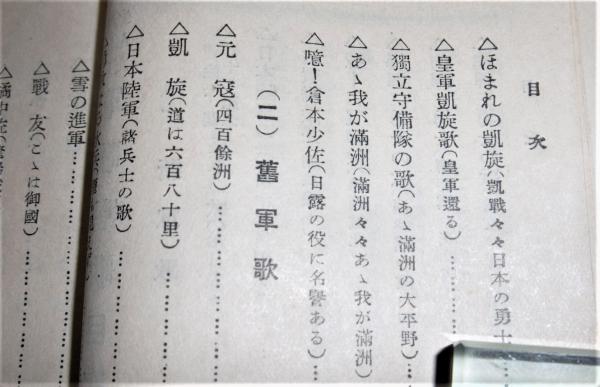 目次
△ほまれの凱旋(凱戰々々日本の勇士
△皇軍凱旋歌(皇軍還る)…………
△獨立守備隊の歌(あゝ滿洲の大平野)…
△あゝ我が滿洲(滿洲々々あゝ我が滿洲)
△噫！倉本少佐(日露の役に名譽ある)…
(二)舊軍歌
△元寇(四百餘洲)…………
△凱旋(道は六百八十里)…………
△日本陸軍(諸兵士の歌)…………
△雪の進軍…………
△戰友(こゝは御國)
△橘中佐